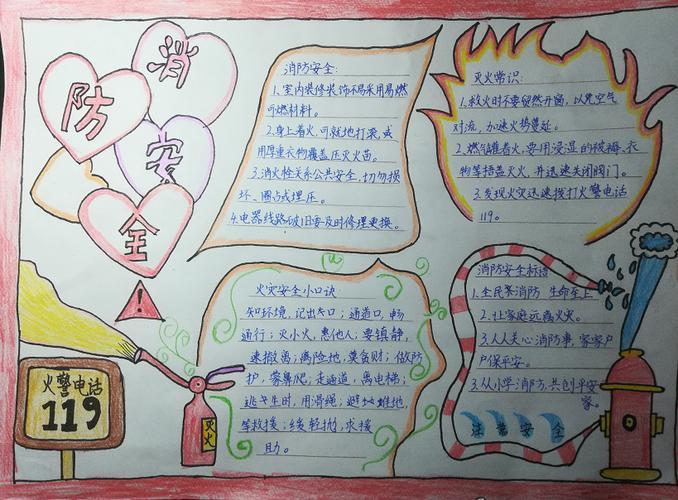 消
防
安
全
!
火警电话
119
灭火
消防安全:
1.室内装修装饰不易采用易燃
可燃材料。
2.身上着火,可就地打滚,或
用厚重衣物覆盖压灭火苗。
3.消火栓关系公共安全,切勿损
坏、圈占或埋压。
4.电器线路破旧要及时修理更换。
灭火常识:
1.救火时不要贸然开窗,以免空气
对流,加速火势蔓延。
2.燃气罐着火,要用浸湿的被褥、衣
物等捂盖灭火,并迅速关闭阀门。
3.发现火灾迅速拨打火警电话
119。
火灾安全小口诀
知环境,记出口;通道口,畅
通行;灭小火,惠他人;要镇静,
速撤离;病险地,莫贪财;做防
护,蒙鼻爬;走通道,离电梯;
逃生时,用滑绳;避
等救援;缓轻抛,求援
助。
消防安全标语
1.全民聚消防 生命至上
2.让家庭远离火灾。
3.人人关心消防事,家家户
户保平安。
3.从小学消防,共创平安
家。
注意安全